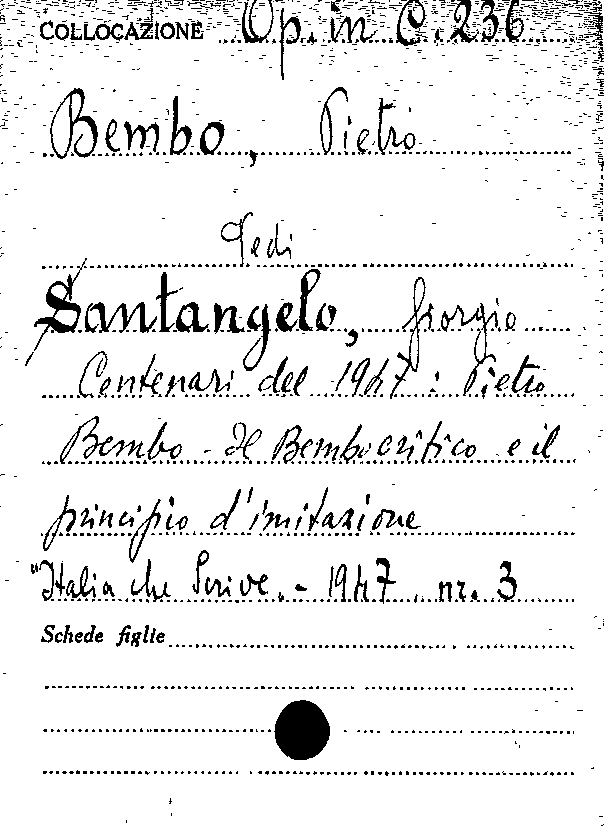 COLLOCAZIONE Op. in C. 236
Bembo, Pietro
Vedi
Santangelo, Giorgio
Centenari del 1947 : Pietro
Bembo - Il Bembo critico e il
principio d'imitazione
"Italia che Scrive. - 1947, nr. 3
Schede figlie